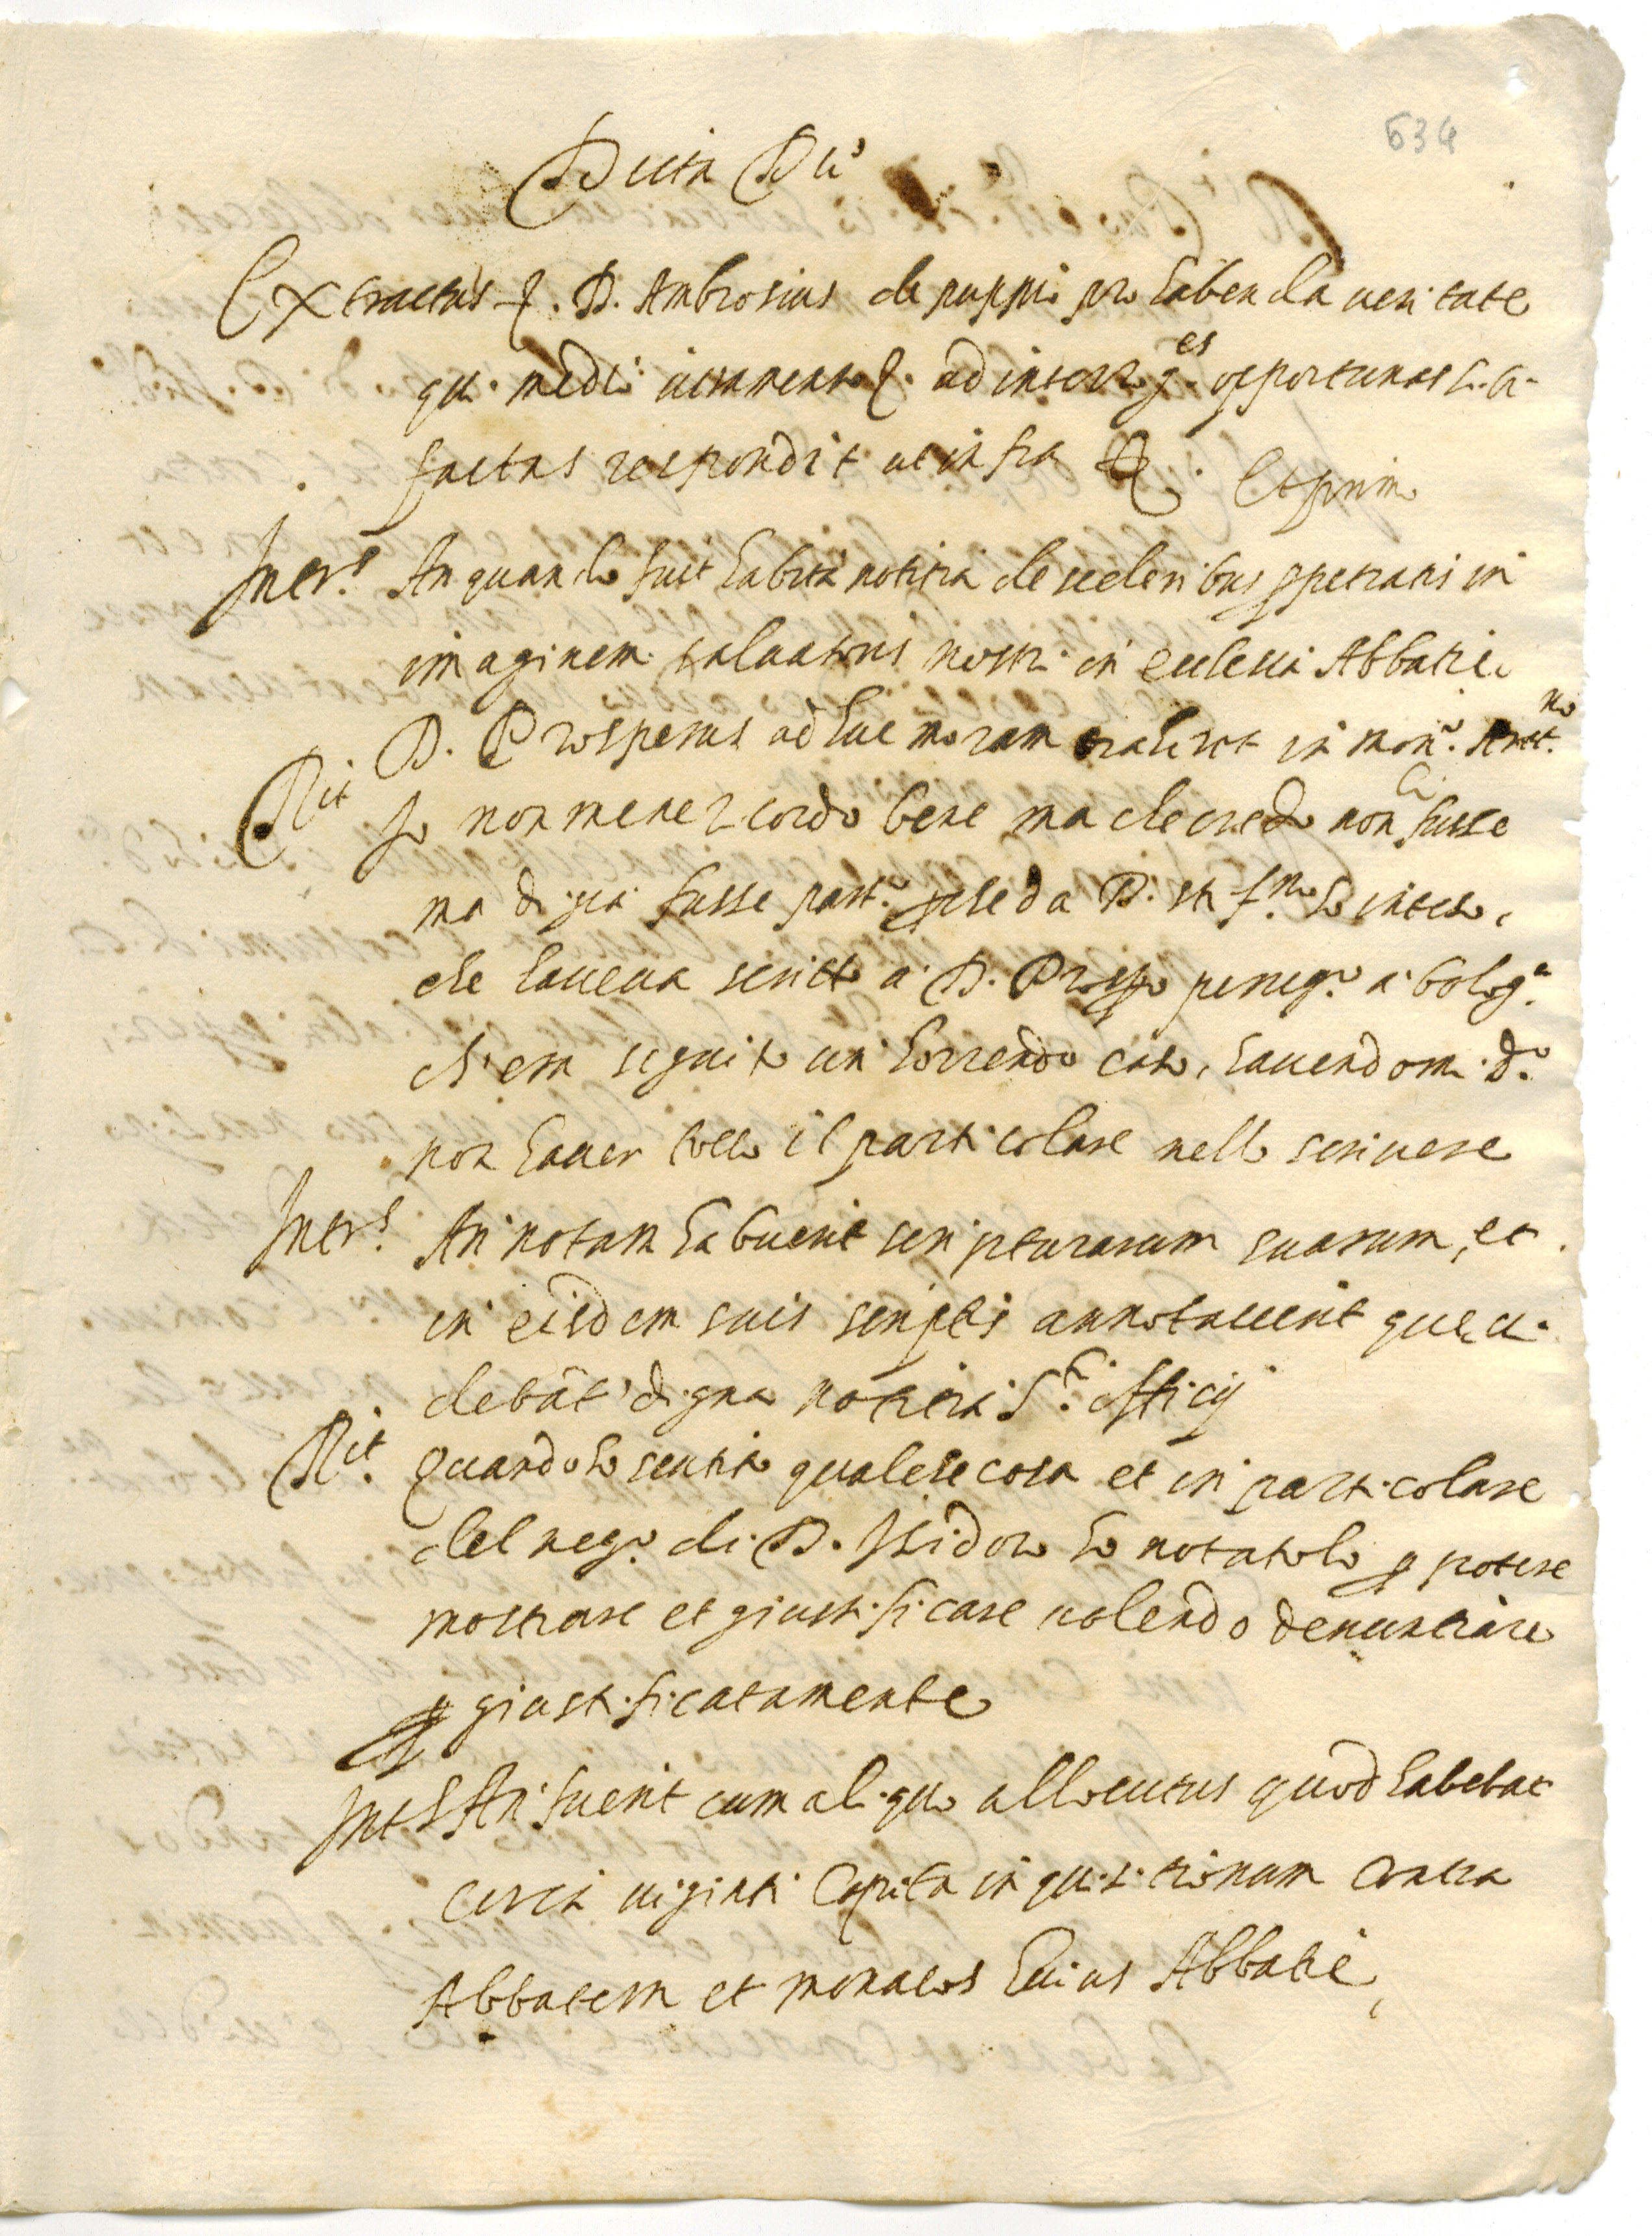 634
Dicta Die
Extractus &. D. Ambrosius de puppio pro habenda veritate
qui medio iuramento &. ad interr.g.es opportunas s. a.
factas respondit ut infra &. Et primo
Inter.s An quando fuit habita notitia de sceleribus ppetratis in
imaginem saluatoris nostri in ecclesia Abbatie
D. Prosperus adhuc moram traheret in mon.o Aret.no
R.it Io non me ne ricordo bene ma che credo non ci fusse
ma di gia fusse part.o pche da D. ho inteso,
che haueua scritto a D. Prospo p neg.o a bolog.a
ch'era seguito un horrendo caso, hauendomi d.o
non hauer tocco il particolare nello scriuere
Inter.s An notam habuerit scripturarum suarum, et
in eisdem suis scriptis annotauerit que ui-
debāt digna notitia S.ti officij
R.it Quando ho sentito qualche cosa et in particolare
del neg.o di D. Isidoro ho notatolo p potere
mostrare et giustificare uolendo denuntiare
giustificatamente
Int.s An fuerit cum aliquo allocutus quod habebat
circa uiginti Capita inquisitionum contra
Abbatem et monacos huius Abbatie,